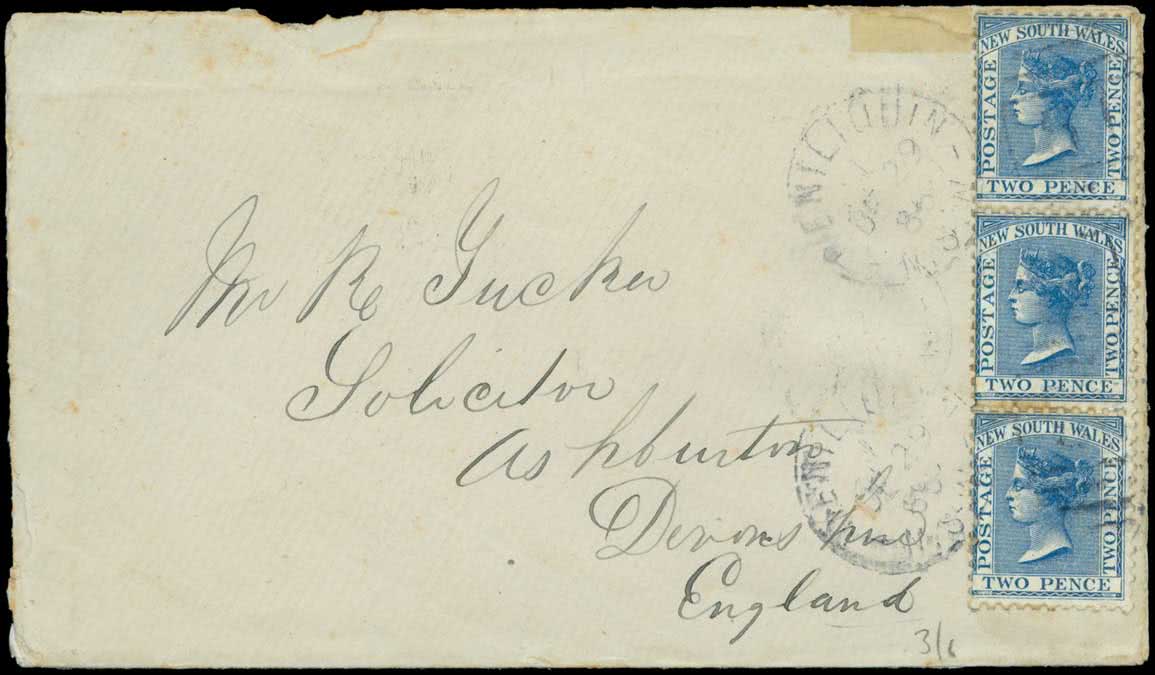 NEW SOUTH WALES
POSTAGE
TWO PENCE
TWO PENCE
DENILIQUIN
29
86
NEW SOUTH WALES
POSTAGE
TWO PENCE
TWO PENCE
Mr R Tucker
Solicitor
Ashburton
Devonshire
England
NEW SOUTH WALES
POSTAGE
TWO PENCE
TWO PENCE
29
3/6